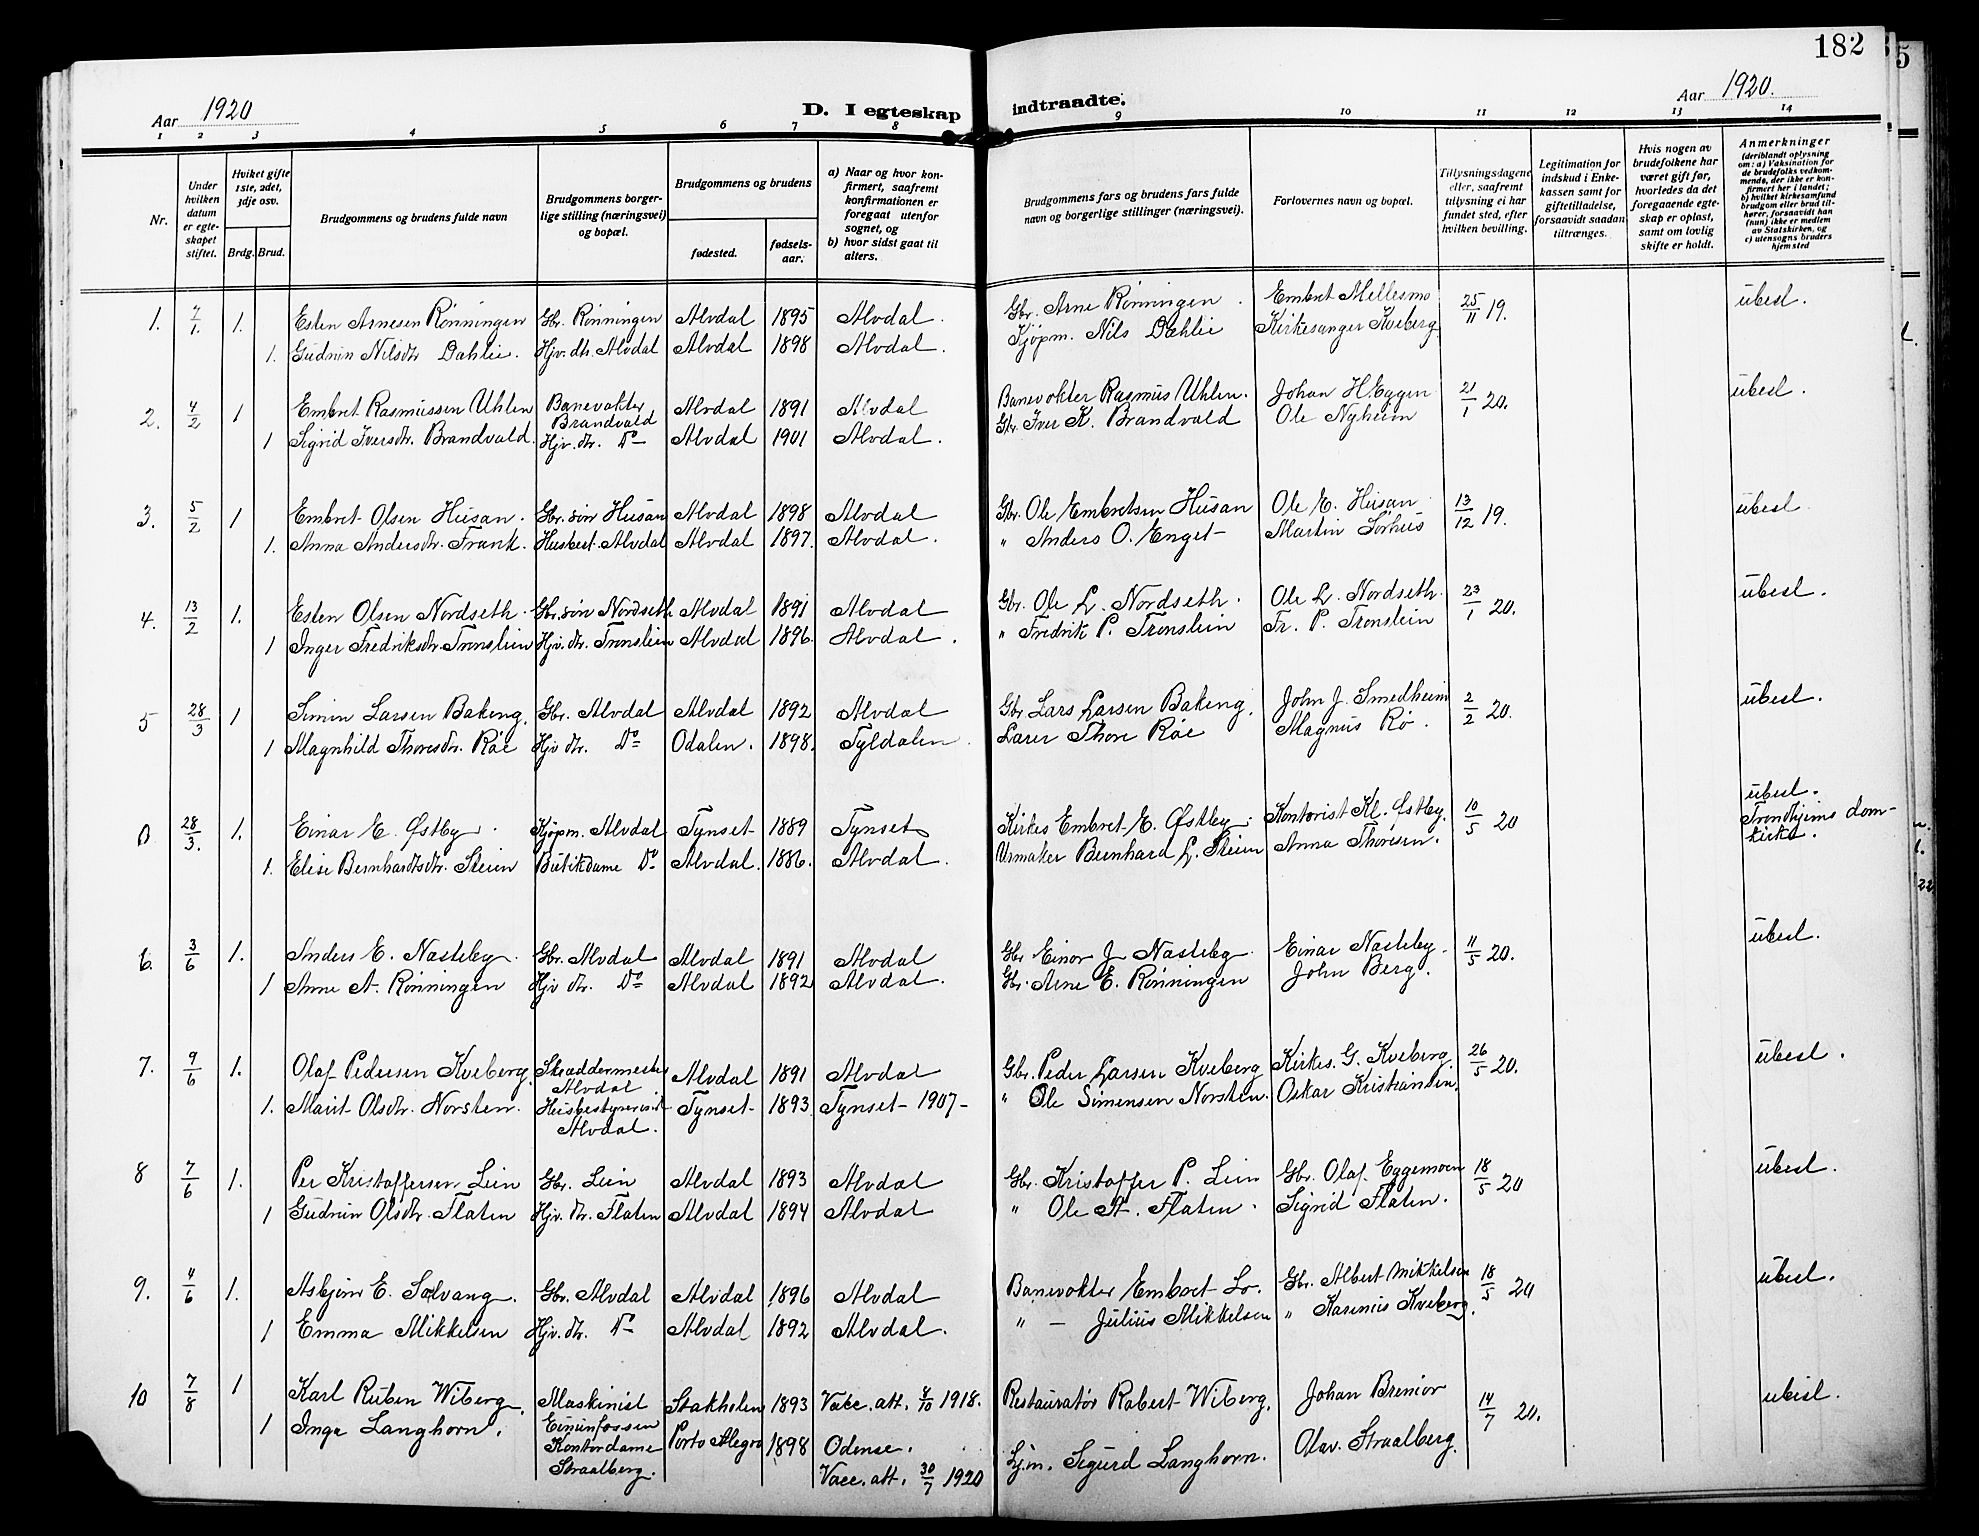 182
5
Aar 1920
D. I egteskap indtraadte.
Aar 1920.
1 2 3 4 5 6 7 8 9 10 11 12 13 14
Nr.
Under hvilken datum er egte-skapet stiftet.
Hviket gifte 1ste, 2det, 3dje osv.
Brdg. Brud.
Brudgommens og brudens fulde navn
Brudgommens borger-lige stilling (næringsvei) og bopæl.
Brudgommens og brudens
fødested.
fødsels-aar.
a) Naar og hvor kon-firmert, saafremt konfirmationen er foregaat utenfor sognet, og
b) hvor sidst gaat til alters.
Brudgommens fars og brudens fars fulde navn og borgerlige stillinger (næringsvei).
Forlovernes navn og bopæl.
Tillysningsdagene eller, saafremt tillysning ei har fundet sted, efter hvilken bevilling.
Legitimation for indskud i Enke-kassen samt for giftetilladelse, forsaavidt saadan tiltrænges.
Hvis nogen av brudefolkene har været gift før, hvorledes da det foregaaende egte-skap er opløst, samt om lovlig skifte er holdt.
Anmerkninger
(deriblandt oplysning om: a) Vaksination for de brudefolks vedkom-mende, der ikke er kon-firmert her i landet; b) hvilket kirkesamfund brudgom eller brud til-hører, forsaavidt han (hun) ikke er medlem av Statskirken, og c) utensogns bruders hjemsted
1. 7/1. 1. Esten Arnesen Rønningen Gbr. Rønningen Alvdal 1895 Alvdal. Gbr. Arne Rønningen. Embret Mellesmo 25/11 19. ubesl.
1. Gudrun Nilsdtr Dahlie. Hjv. dtr. Alvdal Alvdal 1898 Alvdal. Kjøpm. Nils Dahlie Kirkesanger Kveberg.
2. 4/2 1 Embret Rasmussen Uhlen Banevokter Brandvald Alvdal 1891 Alvdal Banevokter Rasmus Uhlen. Johan H. Eggen 21/1 20. ubesl.
1 Sigrid Iversdtr. Brandvald. Hjv. dtr. Do Alvdal 1901 Alvdal. Gbr. Iver K. Brandvald Ole Nyheim
3. 5/2 1 Embret Olsen Husan. Gbr. søn Husan Alvdal 1898 Alvdal Gbr. Ole Embretsen Husan Ole E. Husan 13/12 19. ubesl
1. Anna Andersdtr. Frank. Husbest. Alvdal Alvdal 1897. Alvdal. " Anders O. Enget Martin Sørhus
4. 13/2 1. Esten Olsen Nordseth. Gbr. søn Nordseth Alvdal 1891 Alvdal Gbr. Ole L. Nordseth. Ole L. Nordseth. 23/1 20. ubesl.
1 Inger Fredriksdtr. Tronslien Hjv. dtr. Tronslien Alvdal 1896. Alvdal. " Fredrik P. Tronslein Fr. P. Tronslein
5 28/3 1 Simen Larsen Bakeng. Gbr. Alvdal Alvdal 1892 Alvdal Gbr Lars Larsen Bakeng. John J. Smedheim 2/2 20. ubesl.
1 Magnhild Thoresdtr. Røe Hjv dtr. Do Odalen. 1898. Tyldalen. Lærer Thore Røe Magnus Rø.
0 28/3. 1. Einar E. Østby. Kjøpm. Alvdal Tynset 1889 Tynset Kirkes Embret E. Østby. Kontorist Kl. Østby. 10/5 20 ubesl. Trondhjems dom-kirke.
1. Elise Bernhardtsdtr. Steien Butikdame Do Alvdal. 1886. Alvdal. Urmaker Bernhard L. Steien Anna Thoresen.
6. 3/6 1. Anders E. Nasteby. Gbr. Alvdal Alvdal 1891 Alvdal Gbr Einar J Nasteby. Einar Nasteby. 11/5 20. ubesl.
1 Anne A. Rønningen Hjv dtr. Do Alvdal 1892 Alvdal. Gbr. Arne E. Rønningen John Berg.
7. 9/6 1. Olaf Pedersen Kveberg. Skræddermester Alvdal Alvdal 1891 Alvdal Gbr. Peder Larsen Kveberg Kirkes. G. Kveberg. 26/5 20. ubesl.
1. Marit Olsdtr. Norsten. Husbestyrerinde Alvdal. Tynset 1893 Tynset 1907 " Ole Simensen Norsten. Oskar Kristiansen.
8 7/6 1. Per Kristoffersen Lien Gbr. Lien Alvdal 1893 Alvdal Gbr. Kristoffer P. Lien Gbr. Olaf Eggemoen 18/5 20 ubesl.
1 Gudrun Olsdtr. Flaten Hjv. dtr. Flaten Alvdal 1894 Alvdal " Ole A. Flaten. Sigrid Flaten.
9. 4/6 1. Asbjørn E. Solvang. Gbr. Alvdal Alvdal 1896 Alvdal Banevokter Embret Lo. Gbr. Albert Mikkelsen 18/5 20 ubesl.
1 Emma Mikkelsen Hjv. dtr. Do Alvdal 1892 Alvdal. " — Julius Mikkelsen " Kasenius Kveberg.
10 7/8 1 Karl Ruben Wiberg. Maskinist Einunfossen Stokholm 1893 Vacc. att. 4/10 1918. Restauratør Robert Wiberg. Johan Brenior 14/7 20. ubesl.
1 Inga Langhorn. Kontordame Straalberg. Porto Alegro 1898 Odense. Vacc. att. 30/7 1920 Ljm. Sigurd Langhorn. Olav. Straalberg.